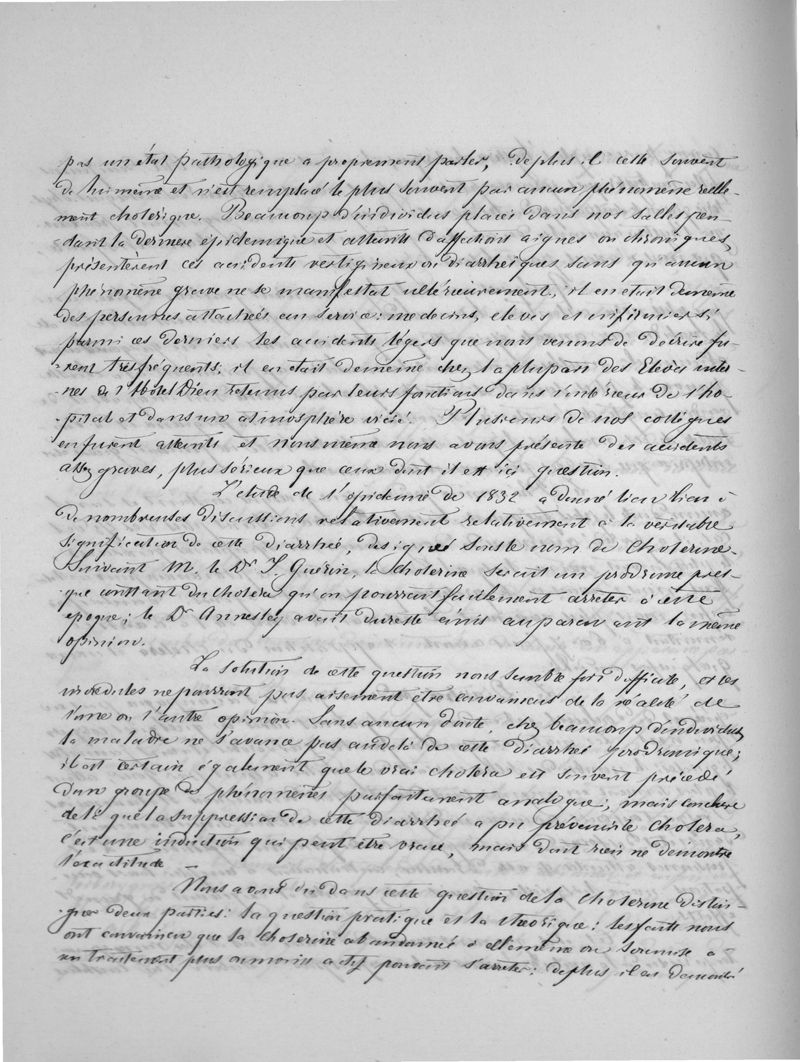 pas un état pathologique a proprement parler, de plus il cesse souvent
de lui même et n'est remplacé le plus souvent par aucun phénomène réelle-
ment cholerique. Beaucoup d'individus placés dans nos salles pen-
dant la derniere épidemique et atteints d'affections aigues ou chroniques,
présentèrent ces accidents vertigineux ou diarrheiques sans qu'aucun
phénomène grave ne se manifestat ultérieurement, il en etait de même
des personnes attachées au service: medecins, eleves et infirmiers si
parmi ces derniers les accidents légers que nous venons de décrire fu-
rent très fréquents; il en était de meme chez la plupart des Eleves inter-
nes de l'Hôtel Dieu retenus par leurs fontions dans l'intérieur de l'ho-
pital et dans un atmosphère vicié. Plusieurs de nos collègues
en furent atteints et nous même nous avons présenté des accidents
assez graves, plus sérieux que ceux dont il est ici question.
L'etude de l'epidemie de 1832 a donné lieu lieu à
de nombreuses discussions relativement relativement à la véritable
signification de cette diarrheé, designeé sous le nom de cholerine.
Suivant M. le Dr J. Guérin, la cholerine serait un prodrome pres-
que constant du cholera qu'on pourrait facilement arreter à cette
epoque; le Dr Annesley avait du reste émis auparavant la même
opinion.
La solution de cette question nous semble fort difficile, et les
incredules ne pourront pas aisement être convaincus de la réalité de
l'une ou l'autre opinion. Sans aucun doute, chez beaucoup d'individus
la maladie ne s'avance pas audelà de cette diarrheé prodromique;
il est certain également que le vrai cholera est souvent précédé
d'un groupe de phénomènes parfaitement analogue; mais conclure
de là que la suppression de cette diarrheé a pu prévenir le cholera,
c'est une induction qui peut être vraie, mais dont rien ne démontre
l'exactitude —
Nous avons du dans cette question de la cholerine distin-
guer deux parties: la question pratique et la théorique: les faits nous
ont convaincu que la cholerine abandonnée à elle même ou soumise a
un traitement plus ou moins actif pouvait s'arreter; de plus il est demontré